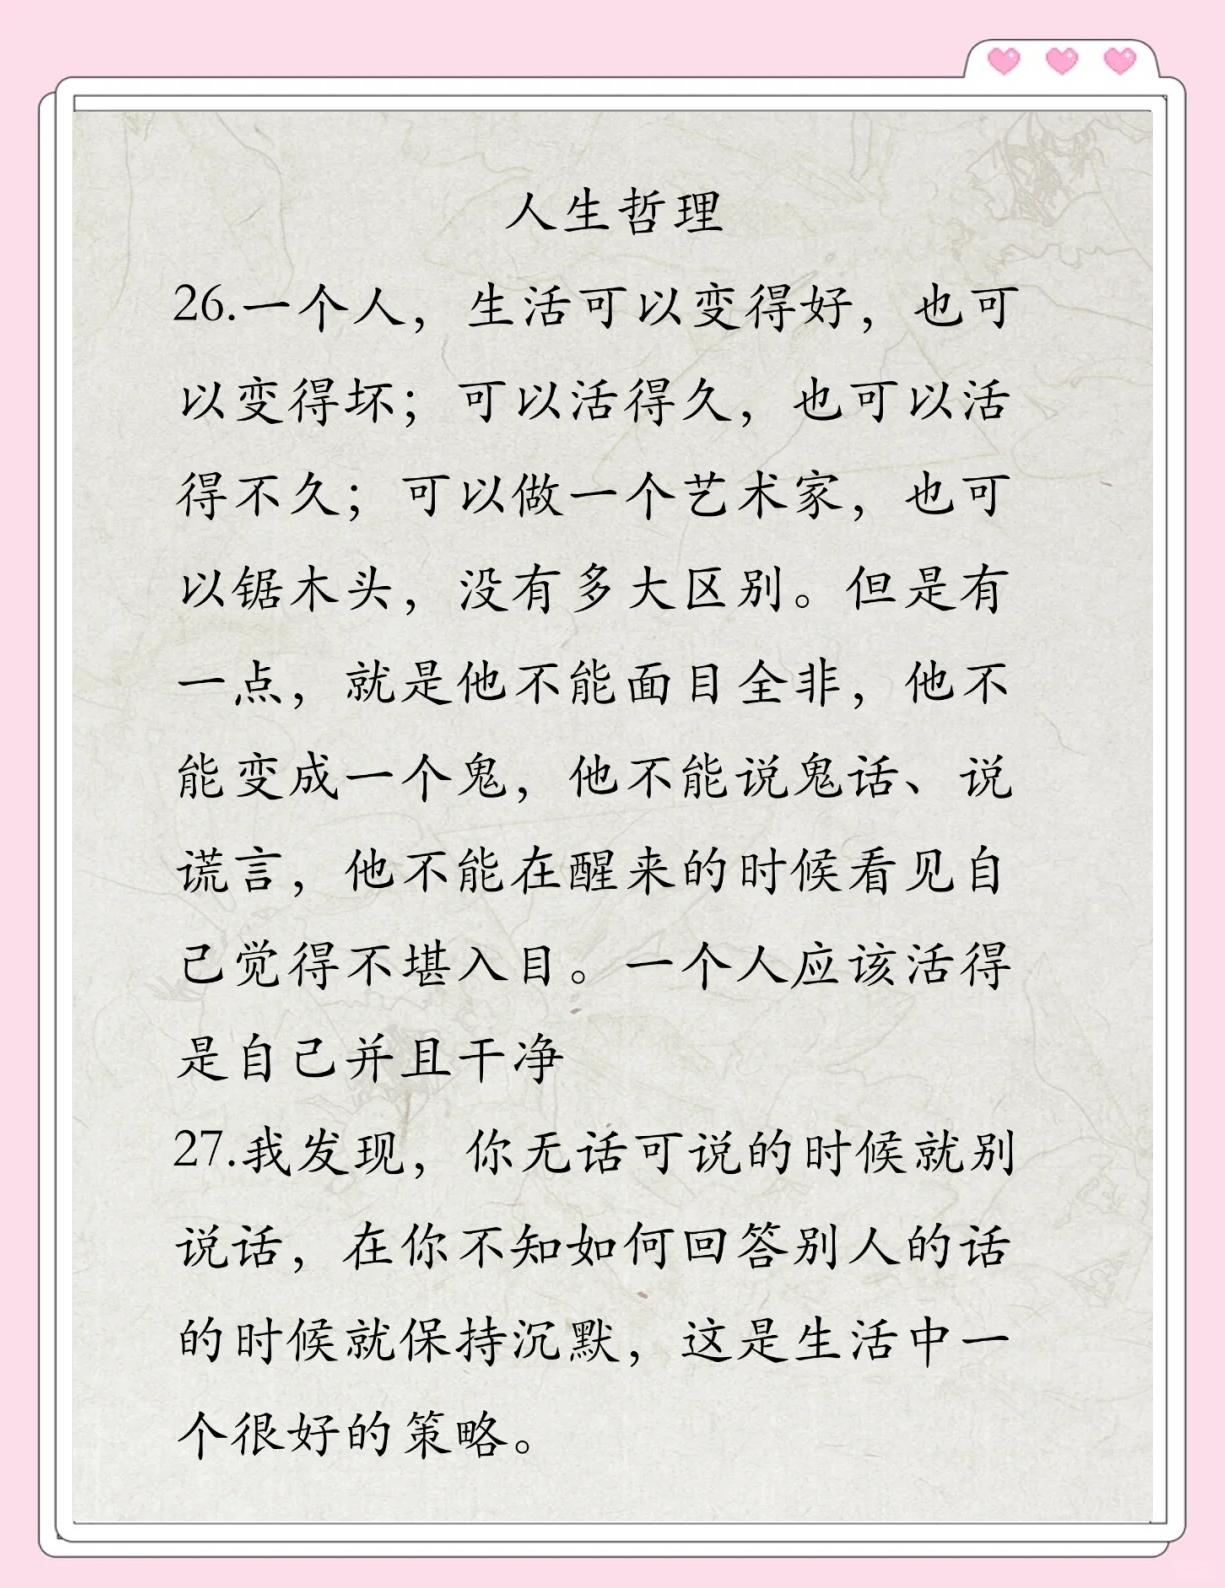 人生哲理
26.一个人，生活可以变得好，也可
以变得坏；可以活得久，也可以活
得不久；可以做一个艺术家，也可
以锯木头，没有多大区别。但是有
一点，就是他不能面目全非，他不
能变成一个鬼，他不能说鬼话、说
谎言，他不能在醒来的时候看见自
己觉得不堪入目。一个人应该活得
是自己并且干净
27.我发现，你无话可说的时候就别
说话，在你不知如何回答别人的话
的时候就保持沉默，这是生活中一
个很好的策略。